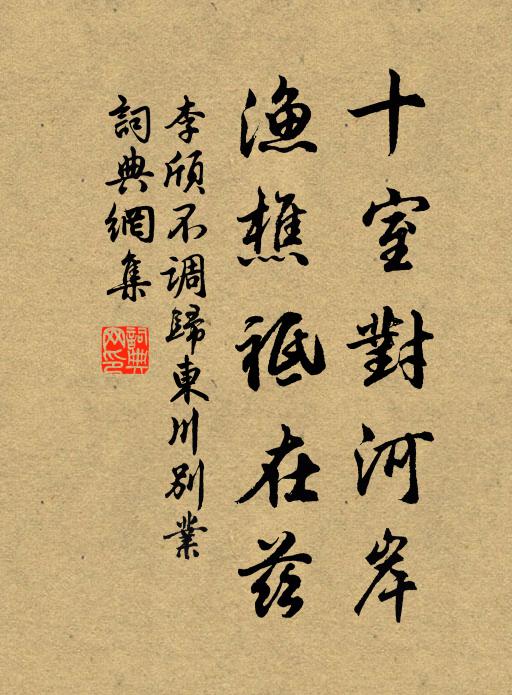 十室對河岸
漁樵祗在茲
李頎不調歸東川別業
詞典網集
詞典網印